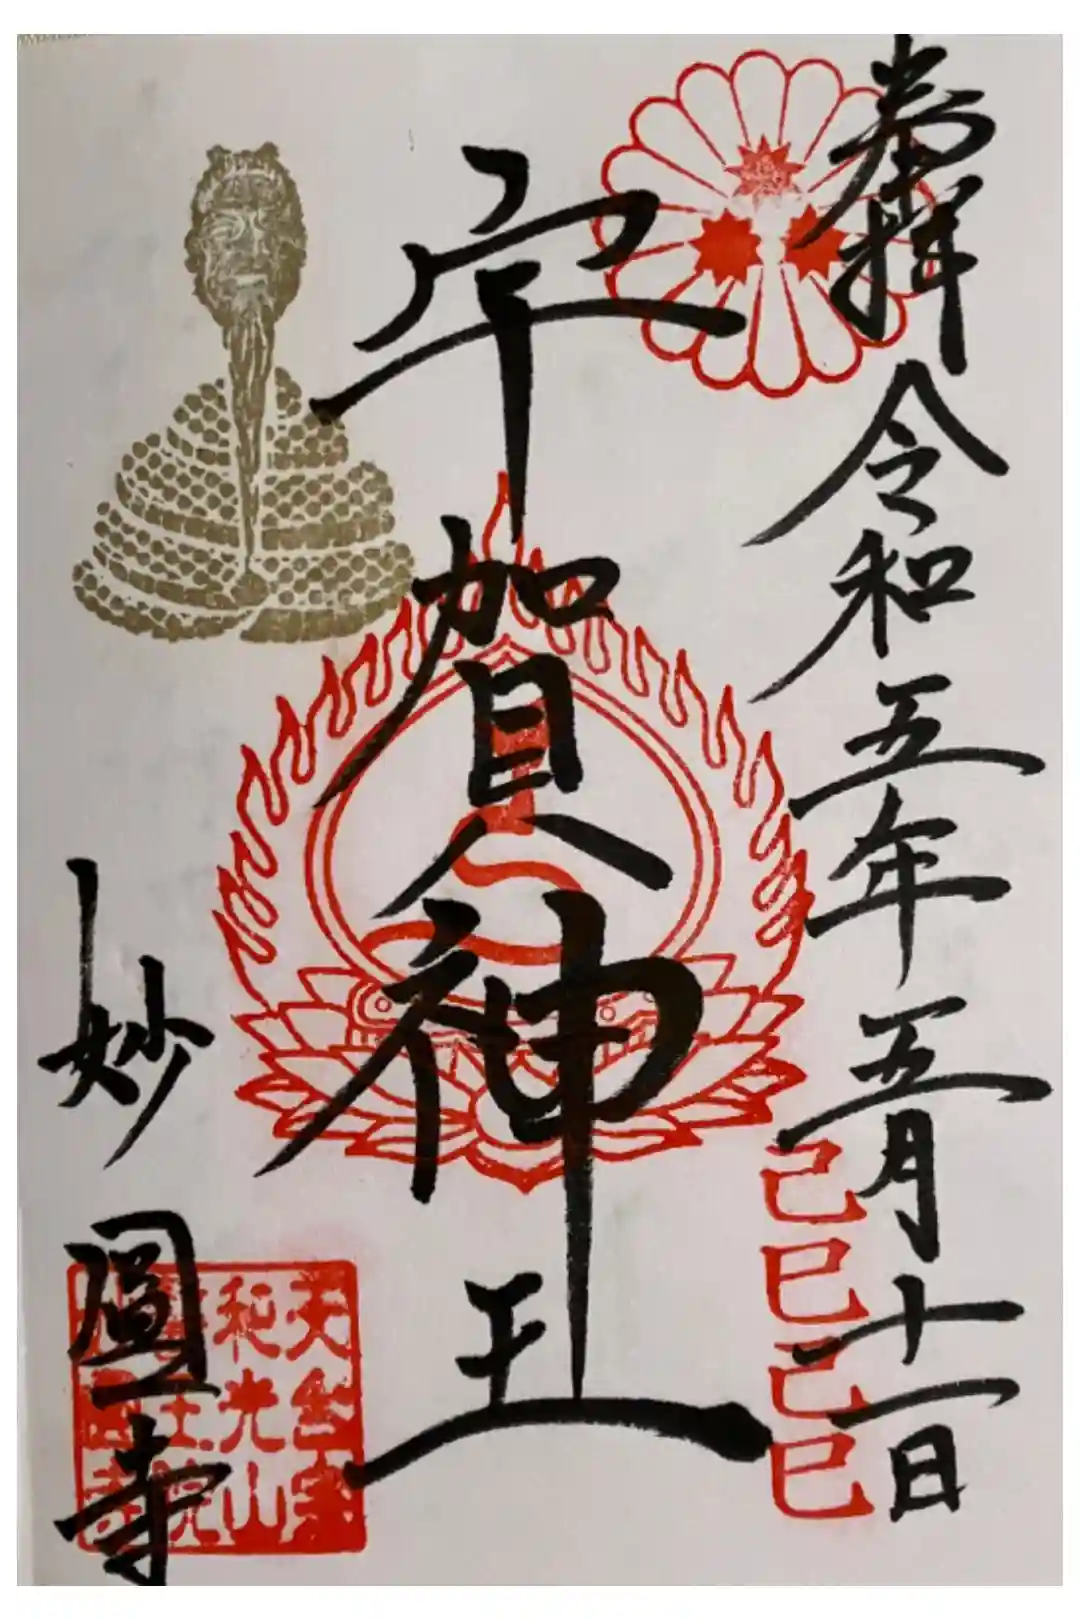 奉拜 令和五年五月十一日
己巳己巳
宇賀神王
妙圓寺
天台宗
和光山
王院
圓寺